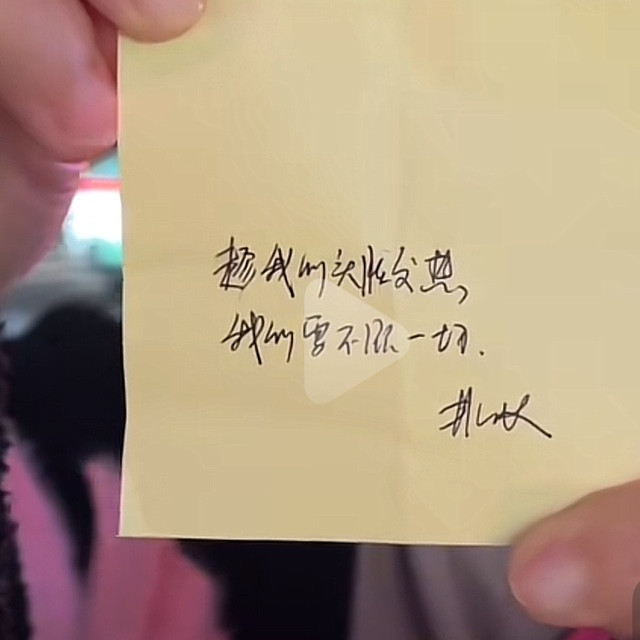 趁我们头脑发热,
我们要不顾一切.